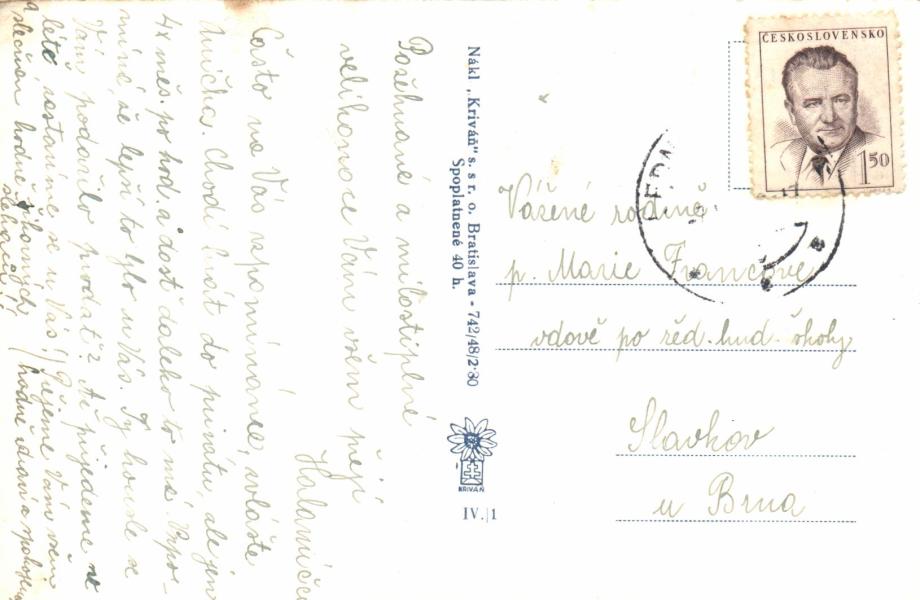 Požehnané a milostiplné
velikonoce Vám všem přejí
Halamíčci
Často na Vás vzpomínáme, zvláště
Anička. Chodí hrát do
4x měs. po hod. a dost daleko to má. Vzpo-
míná, že lepší to bylo u Vás. Ty housle se
Vám podařilo prodat? Až přijedeme v
létě zastavíme se u Vás! Přejeme Vám všem
hodně zdraví a spokojen.
a slečnám hodně
Nákl. „Kriváň" s. s r. o. Bratislava - 742/48/2·30
Spoplatnené 40 h.
KRIVÁŇ
IV.|1
ČESKOSLOVENSKO
1 50
Vážené rodině
p. Marie Francové
vdově po řed. hud. školy
Slavkov
u Brna